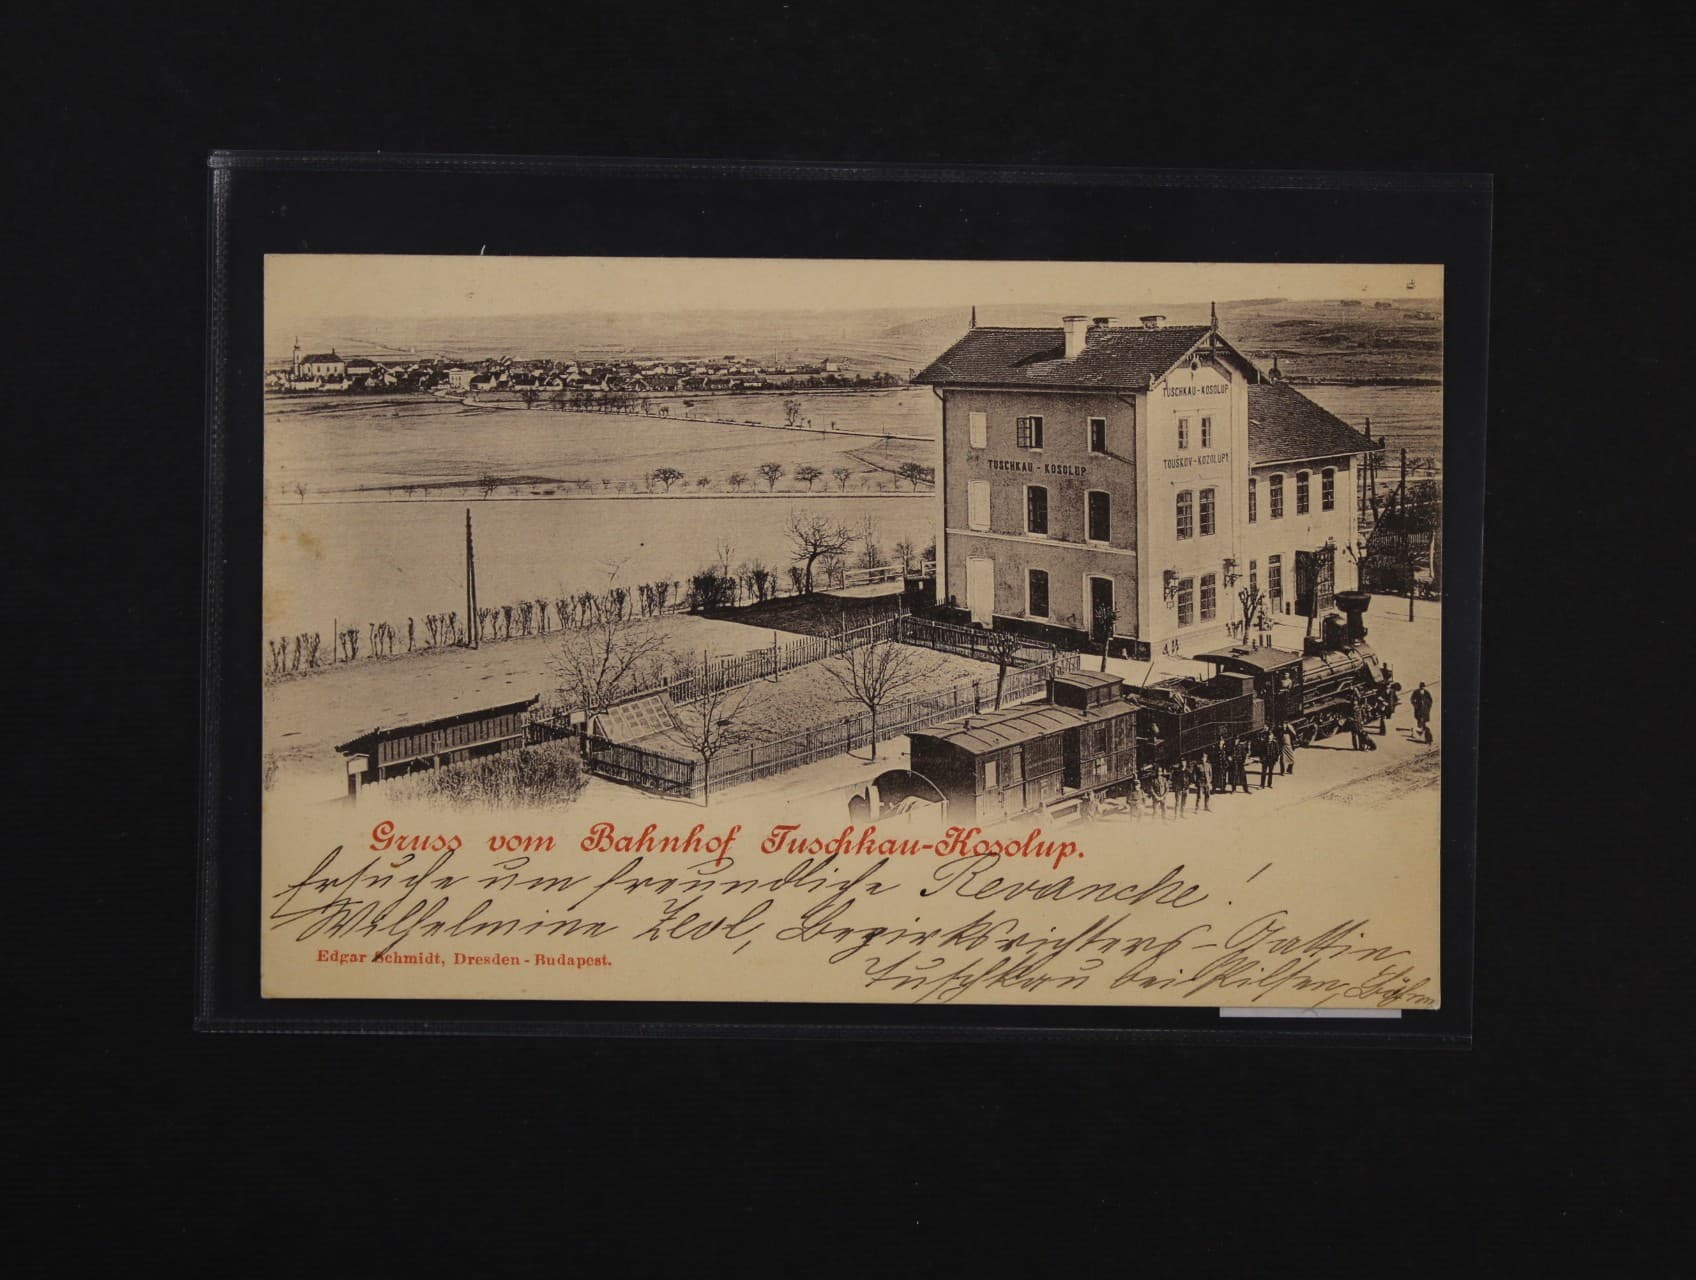 TUSCHKAU-KOSOLUP
TUSCHKAU - KOSOLUP
TOUŠKOV-KOZOLUPY
Gruss vom Bahnhof Tuschkau-Kosolup.
Ersuche um freundliche Revanche!
Wilhelmine Bezirksrichters-Gattin
Edgar Schmidt, Dresden-Budapest.
Tuschkau bei Pilsen, Böhm